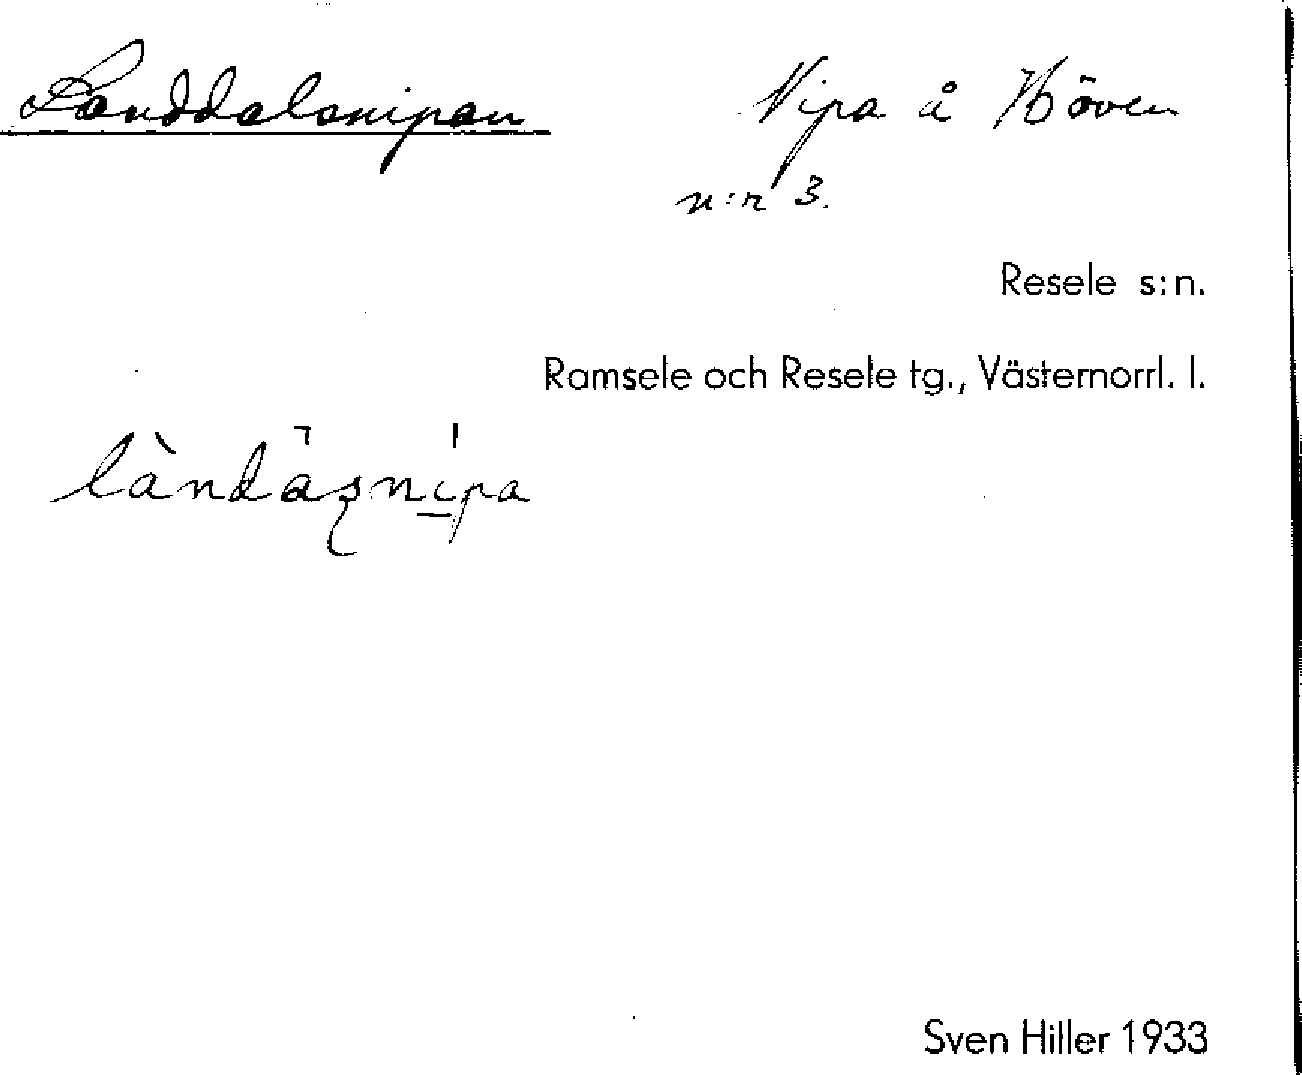 Landdalsnipan
Nipa å Höven
n:r 3.
Resele s:n.
Ramsele och Resele tg., Västernorrl. l.
Sven Hiller 1933